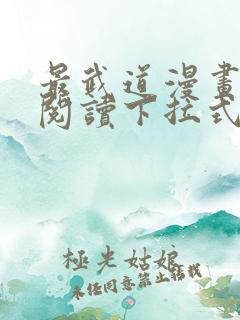 最武道漫畫
閱讀下拉式
極光姑娘
未經同意禁止轉載